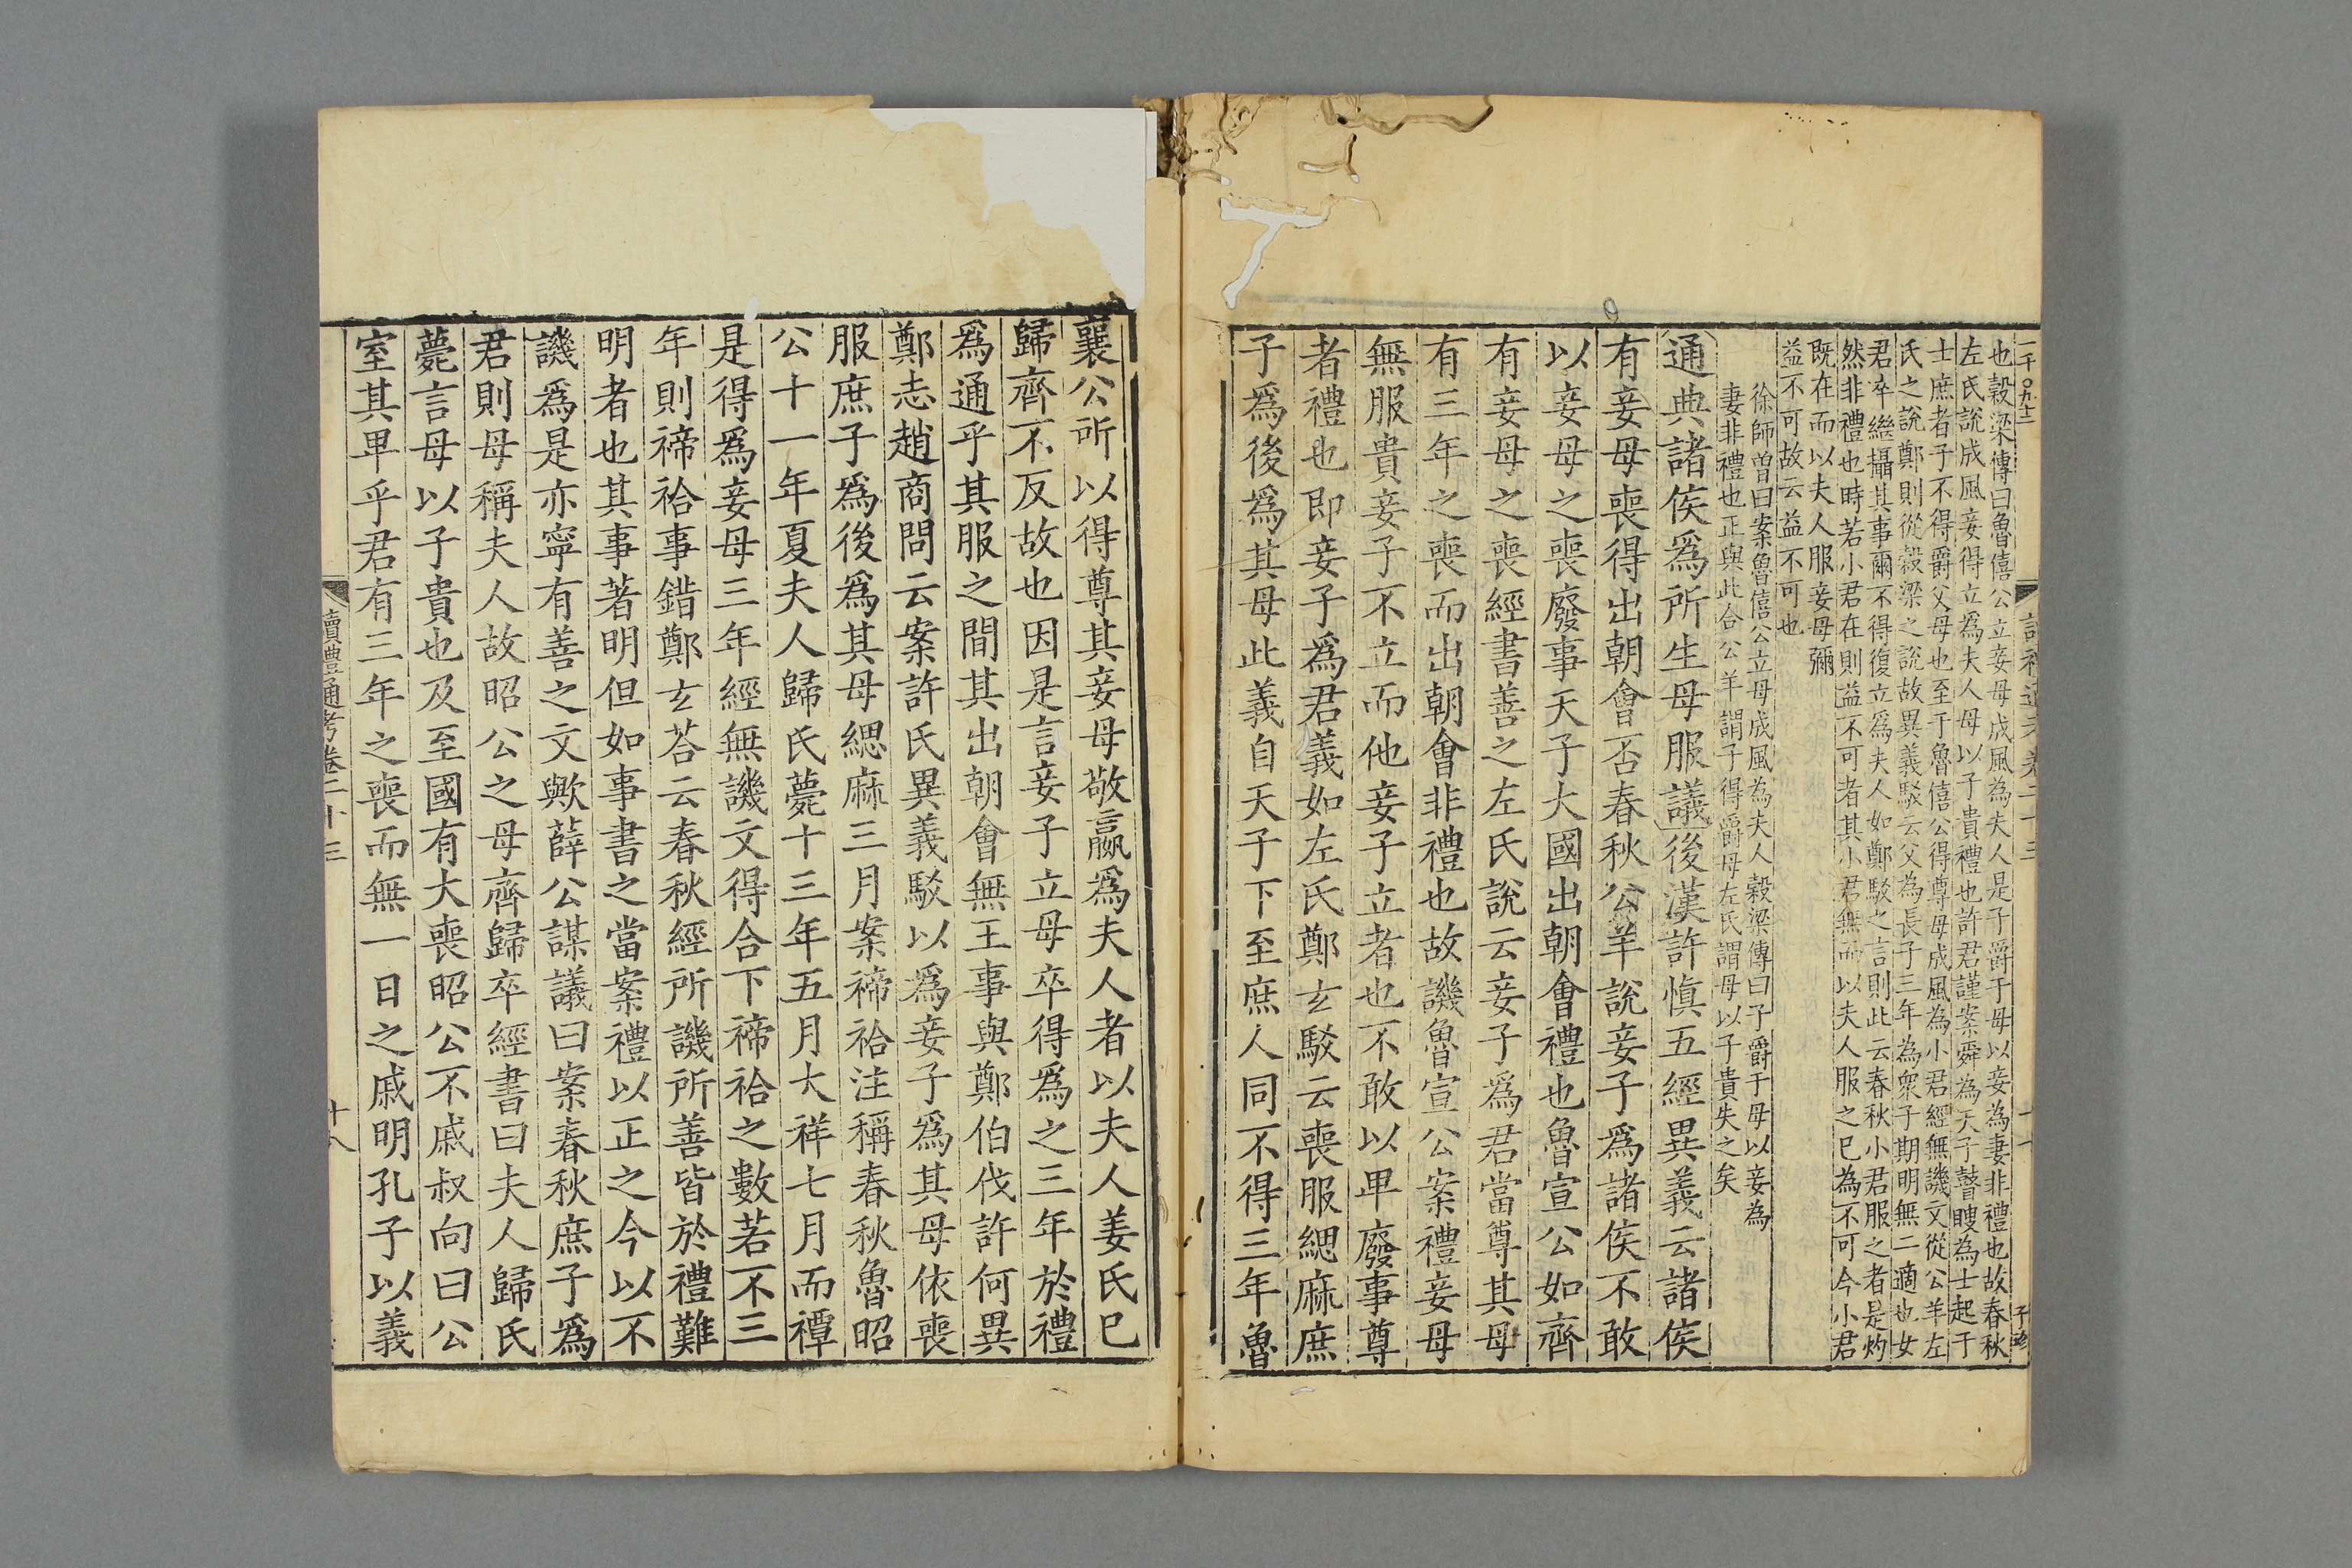 也穀梁傳曰魯僖公立妾母成風為夫人是子爵于母以妾為妻非禮也故春秋
左氏說成風妾得立為夫人母以子貴禮也許君謹案舜為天子瞽瞍為士起于
士庶者子不得爵父母也至于魯僖公得尊母成風為小君經無譏文從公羊左
氏之說鄭則從穀梁之說故異義駁云父為長子三年為衆子期明無二適也女
君卒繼攝其事爾不得復立為夫人如鄭駁之言則此云春秋小君服之者是灼
然非禮也時若小君在則益不可者其小君無而以夫人服之已為不可今小君
既在而以夫人服妾母彌
益不可故云益不可也
徐師曾曰案魯僖公立母成風為夫人穀梁傳曰子爵于母以妾為
妻非禮也正與此合公羊謂子得爵母左氏謂母以子貴失之矣
通典諸侯爲所生母服議後漢許慎五經異義云諸侯
有妾母喪得出朝會否春秋公羊說妾子爲諸侯不敢
以妾母之喪廢事天子大國出朝會禮也魯宣公如齊
有妾母之喪經書善之左氏說云妾子爲君當尊其母
有三年之喪而出朝會非禮也故譏魯宣公案禮妾母
無服貴妾子不立而他妾子立者也不敢以卑廢事尊
者禮也即妾子爲君義如左氏鄭玄駁云喪服緦麻庶
子爲後爲其母此義自天子下至庶人同不得三年魯
襄公所以得尊其妾母敬嬴爲夫人者以夫人姜氏已
歸齊不反故也因是言妾子立母卒得爲之三年於禮
爲通乎其服之間其出朝會無王事與鄭伯伐許何異
鄭志趙商問云案許氏異義駁以爲妾子爲其母依喪
服庶子爲後爲其母緦麻三月案禘祫注稱春秋魯昭
公十一年夏夫人歸氏薨十三年五月大祥七月而禫
是得爲妾母三年經無譏文得合下禘祫之數若不三
年則禘祫事錯鄭玄荅云春秋經所譏所善皆於禮難
明者也其事著明但如事書之當案禮以正之今以不
譏爲是亦寧有善之文歟薛公謀議曰案春秋庶子爲
君則母稱夫人故昭公之母齊歸卒經書曰夫人歸氏
薨言母以子貴也及至國有大喪昭公不慼叔向曰公
室其卑乎君有三年之喪而無一日之慼明孔子以義
讀禮通考卷二十三
十八